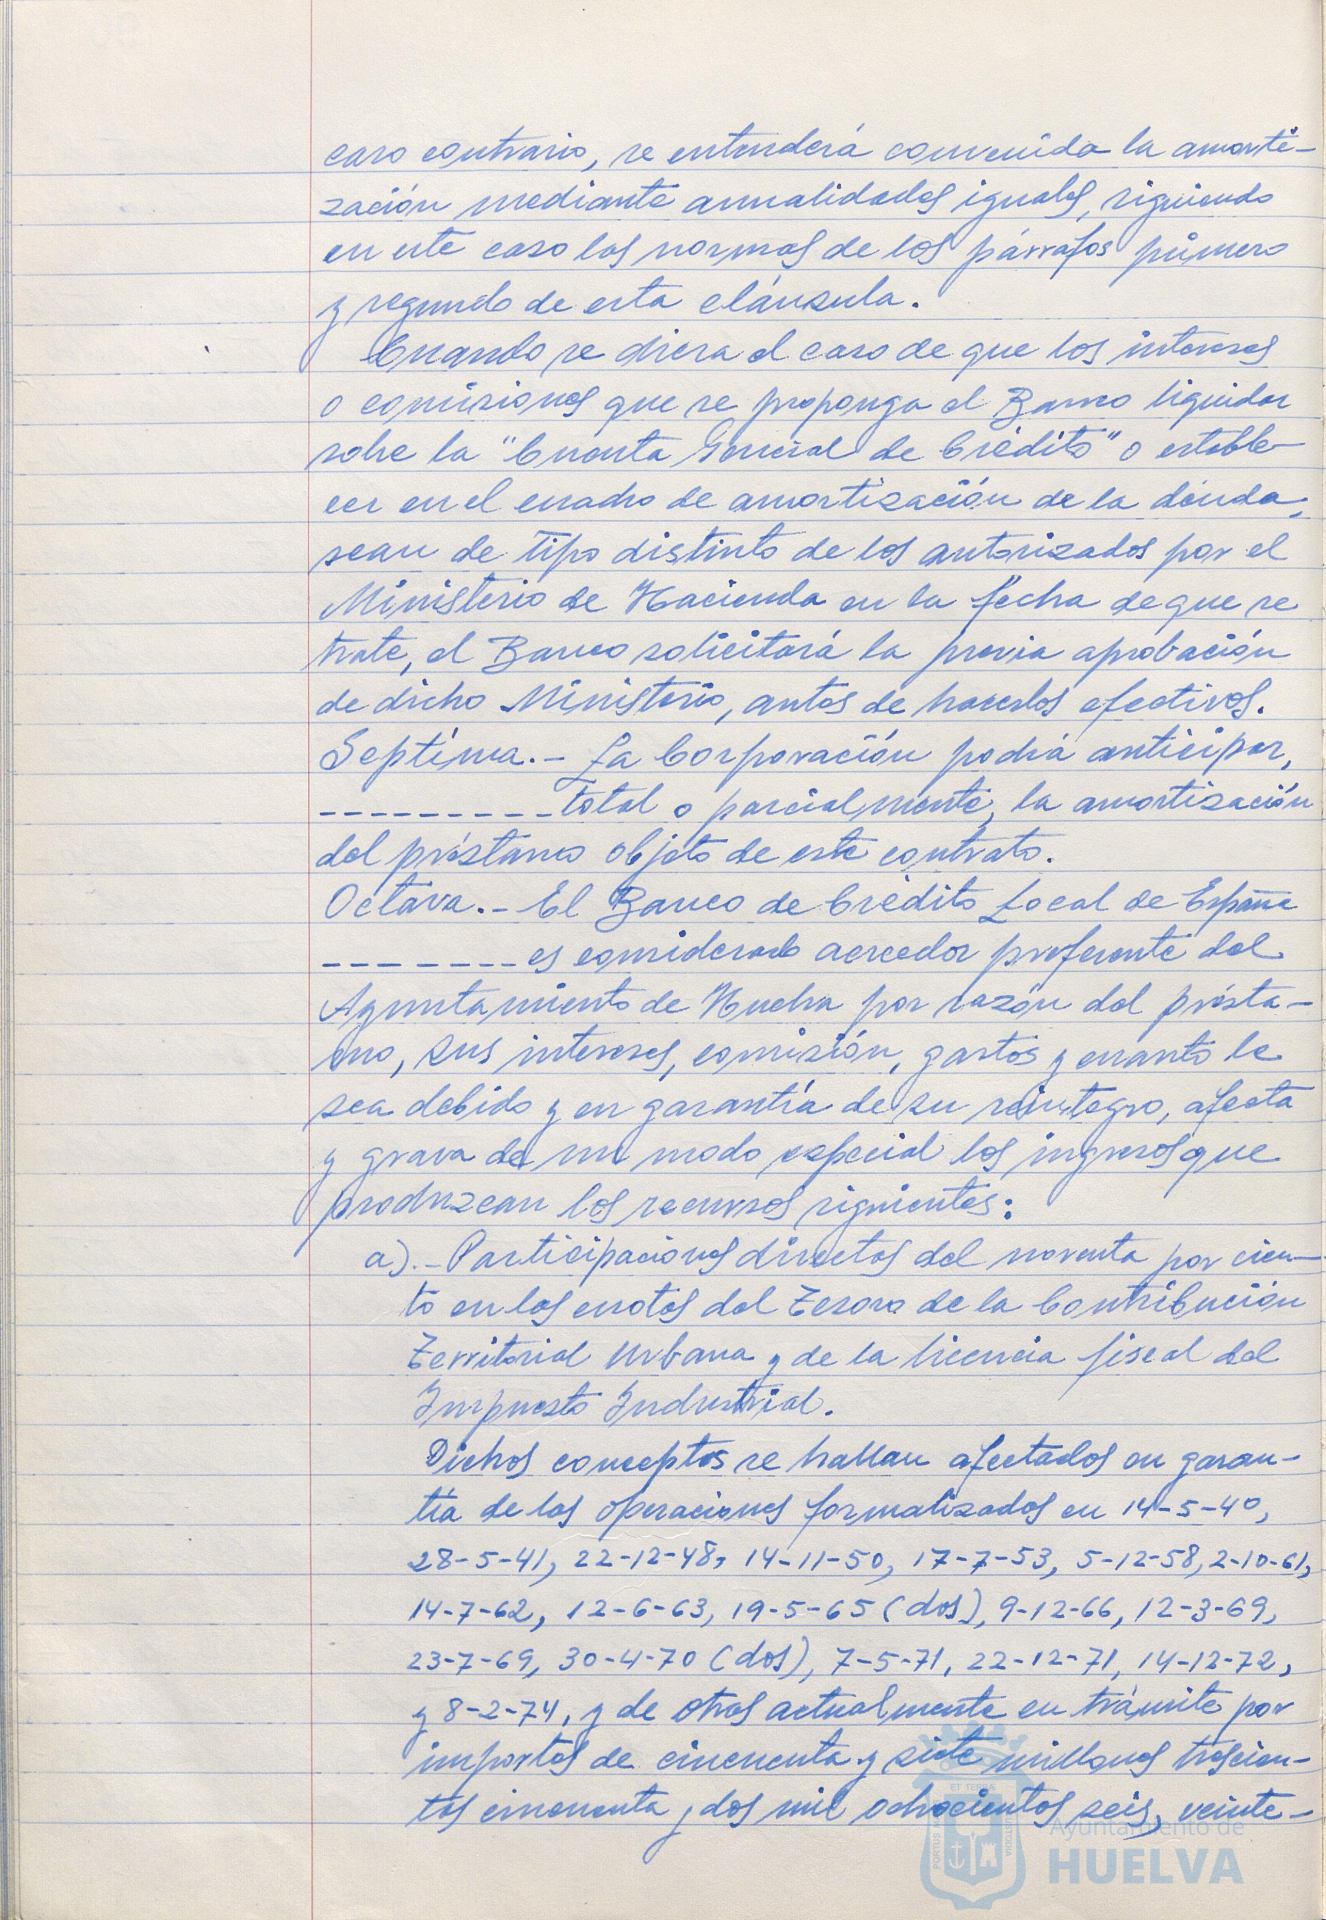 caso contrario, se entenderá convenida la amorti-
zación mediante anualidades iguales, siguiendo
en este caso las normas de los párrafos primero
y segundo de esta cláusula.
Cuando se diera el caso de que los intereses
o comisiones que se proponga el Banco liquidar
sobre la "Cuenta General de Crédito" o estable-
cer en el cuadro de amortización de la deuda,
sean de tipo distinto de los autorizados por el
Ministerio de Hacienda en la fecha de que se
trate, el Banco solicitará la previa aprobación
de dicho Ministerio, antes de hacerlos efectivos.
Septima.- La Corporación podrá anticipar,
--------- total o parcialmente, la amortización
del préstamo objeto de este contrato.
Octava.- El Banco de Crédito Local de España
------- es considerado acreedor preferente del
Ayuntamiento de Huelva por razón del présta-
mo, sus intereses, comisión, gastos y cuanto le
sea debido y en garantía de su reintegro, afecta
y grava de un modo especial los ingresos que
produzcan los recursos siguientes:
a).- Participaciones directas del noventa por cien-
to en las cuotas del Tesoro de la Contribución
Territorial Urbana y de la licencia fiscal del
Impuesto Industrial.
Dichos conceptos se hallan afectados en garan-
tía de las operaciones formalizadas en 14-5-40,
28-5-41, 22-12-48, 14-11-50, 17-7-53, 5-12-58, 2-10-61,
14-7-62, 12-6-63, 19-5-65 (dos), 9-12-66, 12-3-69,
23-7-69, 30-4-70 (dos), 7-5-71, 22-12-71, 14-12-72,
y 8-2-74, y de otras actualmente en trámite por
importes de cincuenta y siete millones trescien-
tas cincuenta y dos mil ochocientas seis, veinte-
Ayuntamiento de
HUELVA